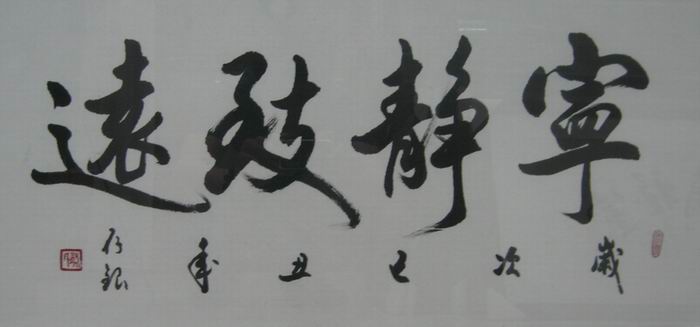 寧靜致遠
歲次己丑年